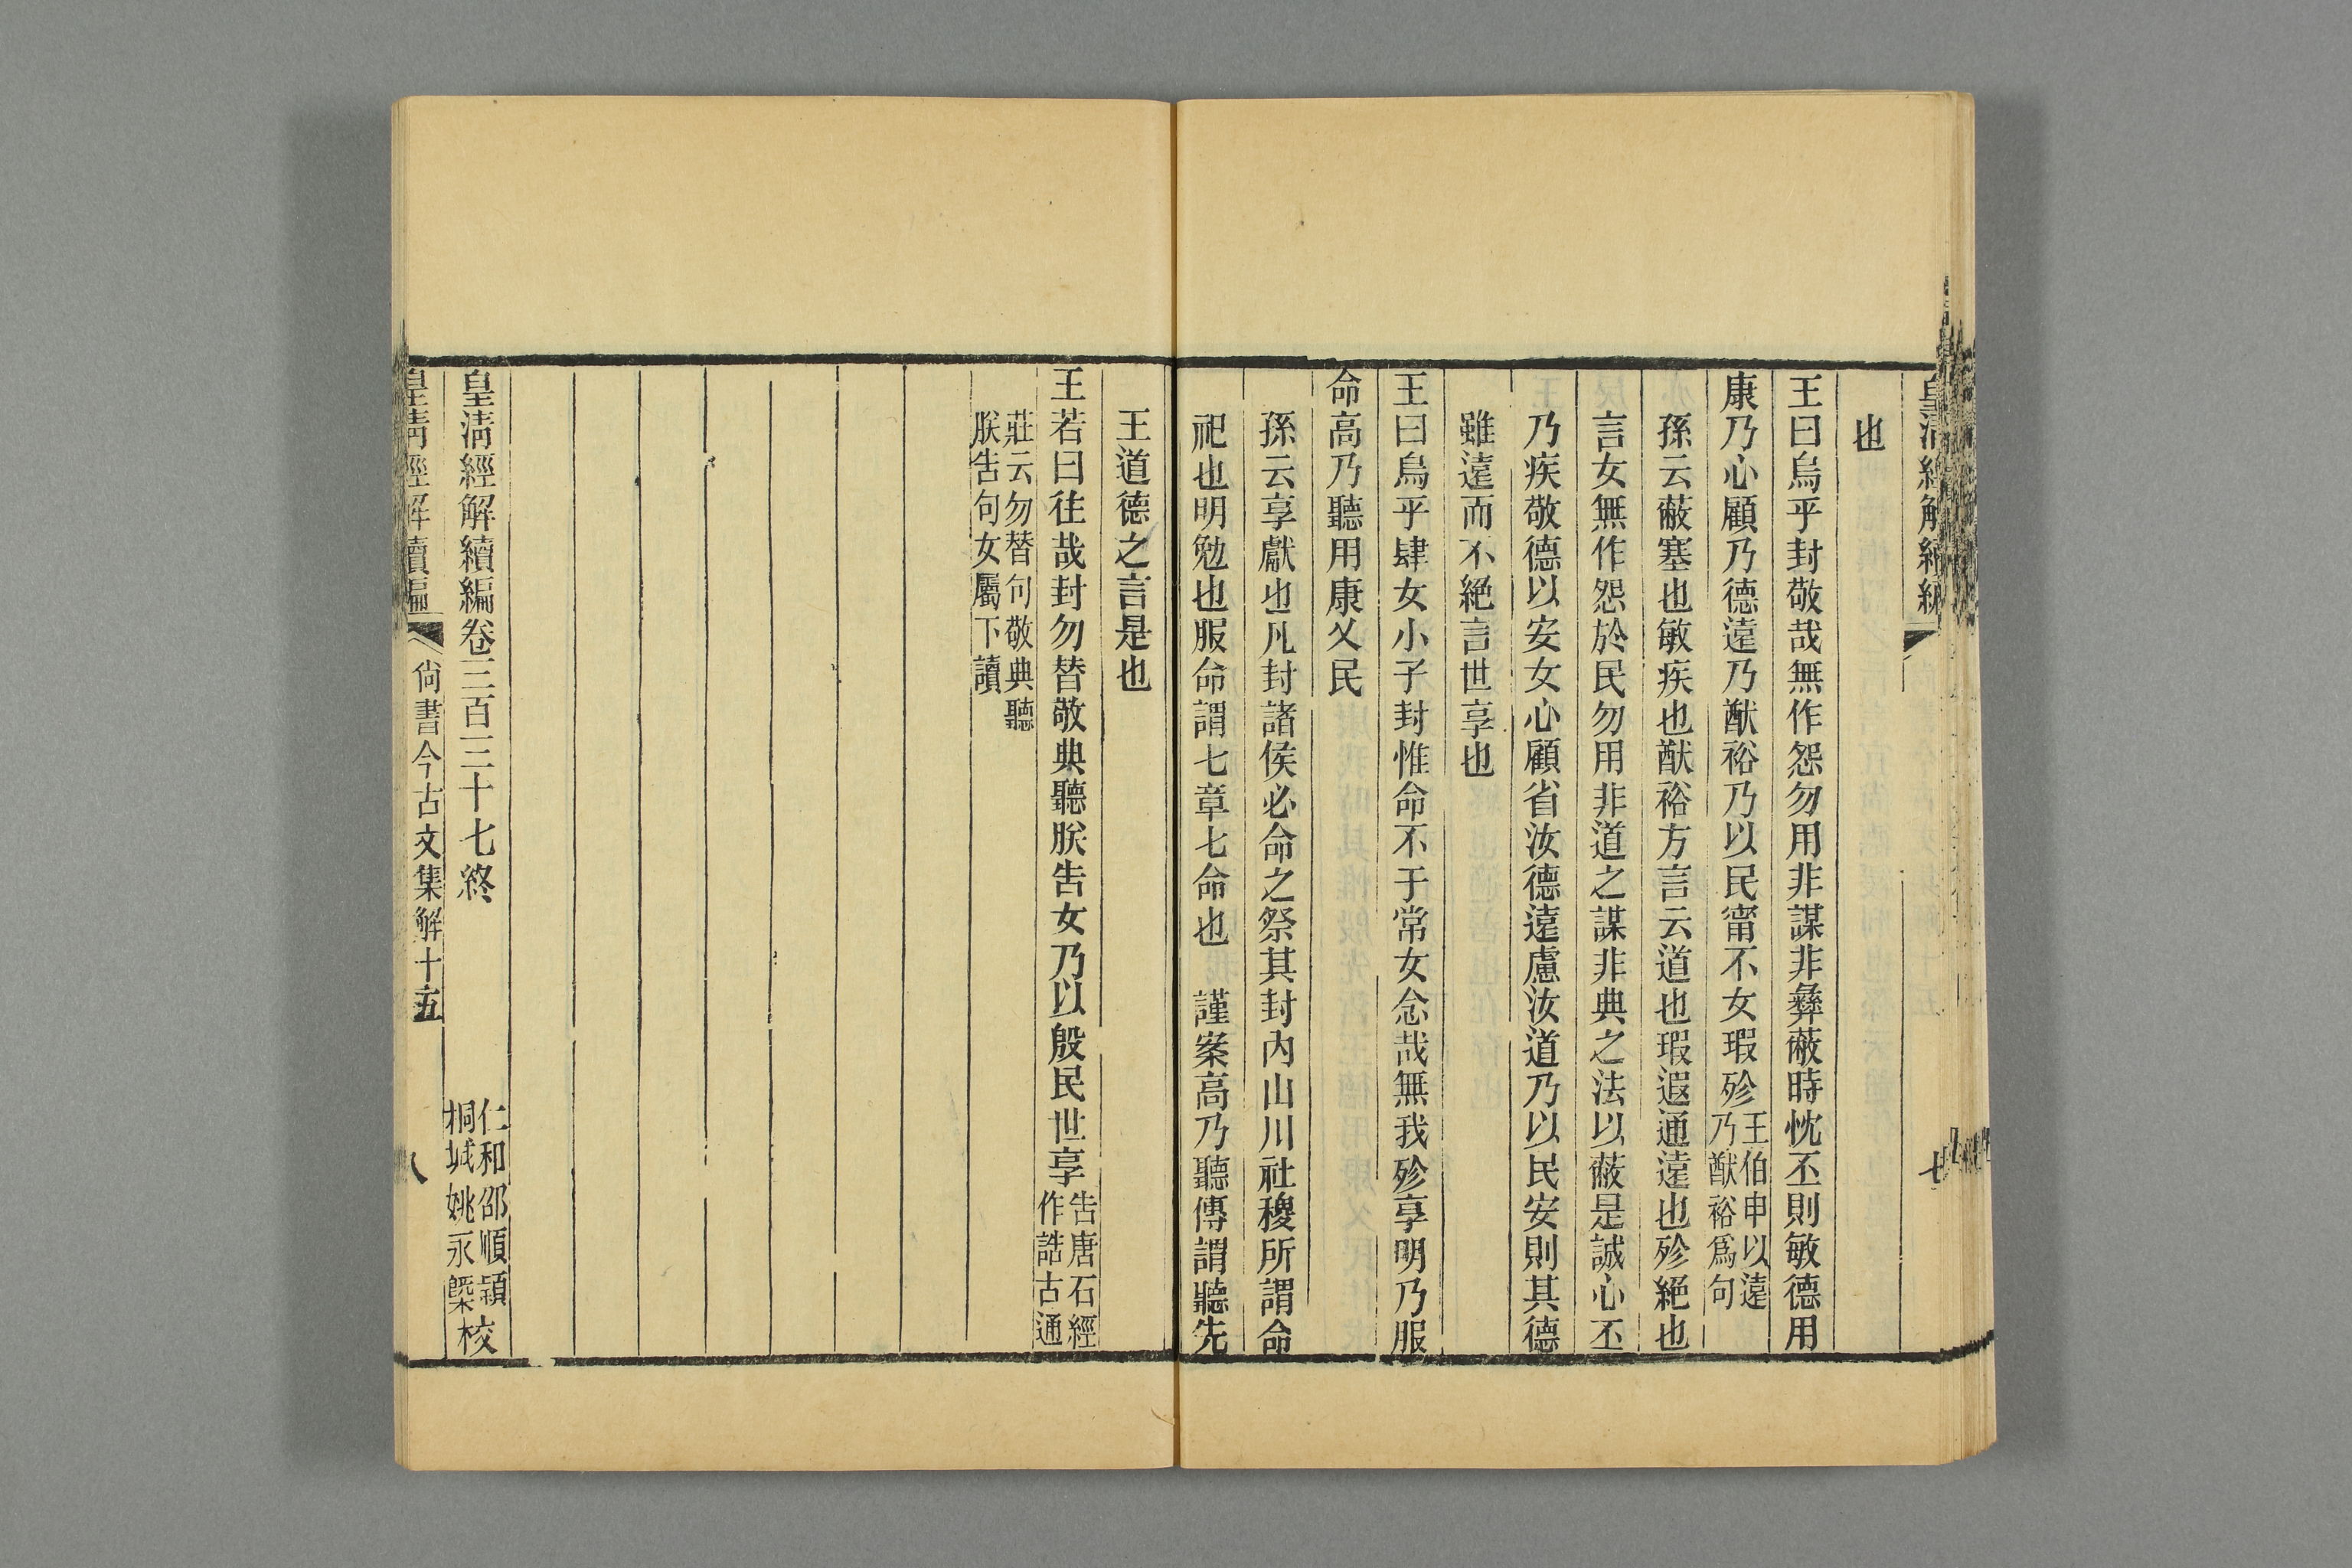 皇清經解續編
七
也
王曰烏乎封敬哉無作怨勿用非謀非彝蔽時忱丕則敏德用
康乃心顧乃德遠乃猷裕乃以民甯不女瑕殄
王伯申以遠
乃猷裕爲句
孫云蔽塞也敏疾也猷裕方言云道也瑕遐通遠也殄絕也
言女無作怨於民勿用非道之謀非典之法以蔽是誠心丕
乃疾敬德以安女心顧省汝德遠慮汝道乃以民安則其德
雖遠而不絕言世享也
王曰烏乎肆女小子封惟命不于常女念哉無我殄享明乃服
命高乃聽用康乂民
孫云享獻也凡封諸侯必命之祭其封內山川社稷所謂命
祀也明勉也服命謂七章七命也　謹案高乃聽傳謂聽先
王道德之言是也
王若曰往哉封勿替敬典聽朕告女乃以殷民世享
告唐石經
作誥古通
莊云勿替句敬典聽
朕告句女屬下讀
皇清經解續編卷三百三十七終
仁和邵順潁
桐城姚永槩
校
皇清經解續編
尙書今古文集解十五
八